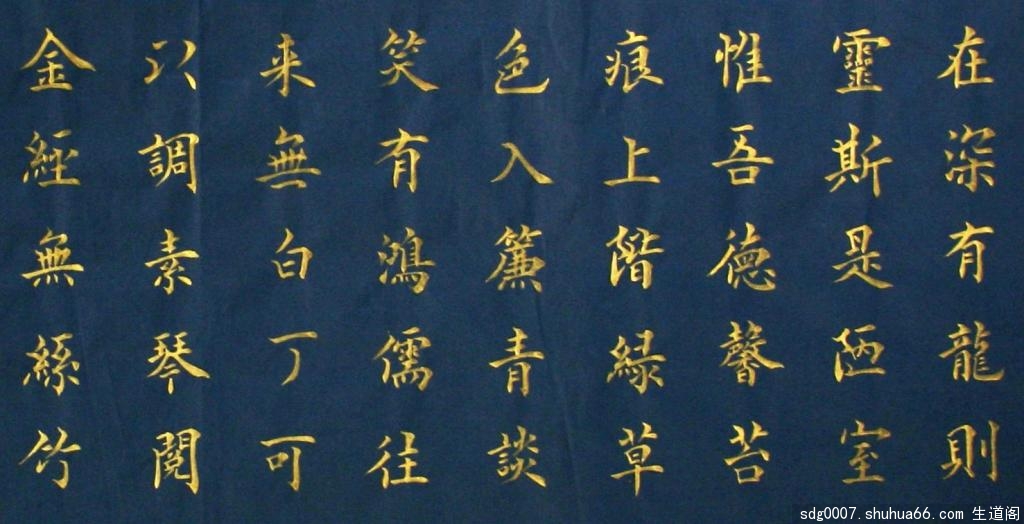 在深有龍則
靈斯是陋室
惟吾德馨苔
痕上階緑草
色入簾青談
笑有鴻儒往
来無白丁可
以調素琴閲
金經無絲竹
sdg0007.shuhua66.com 生道阁